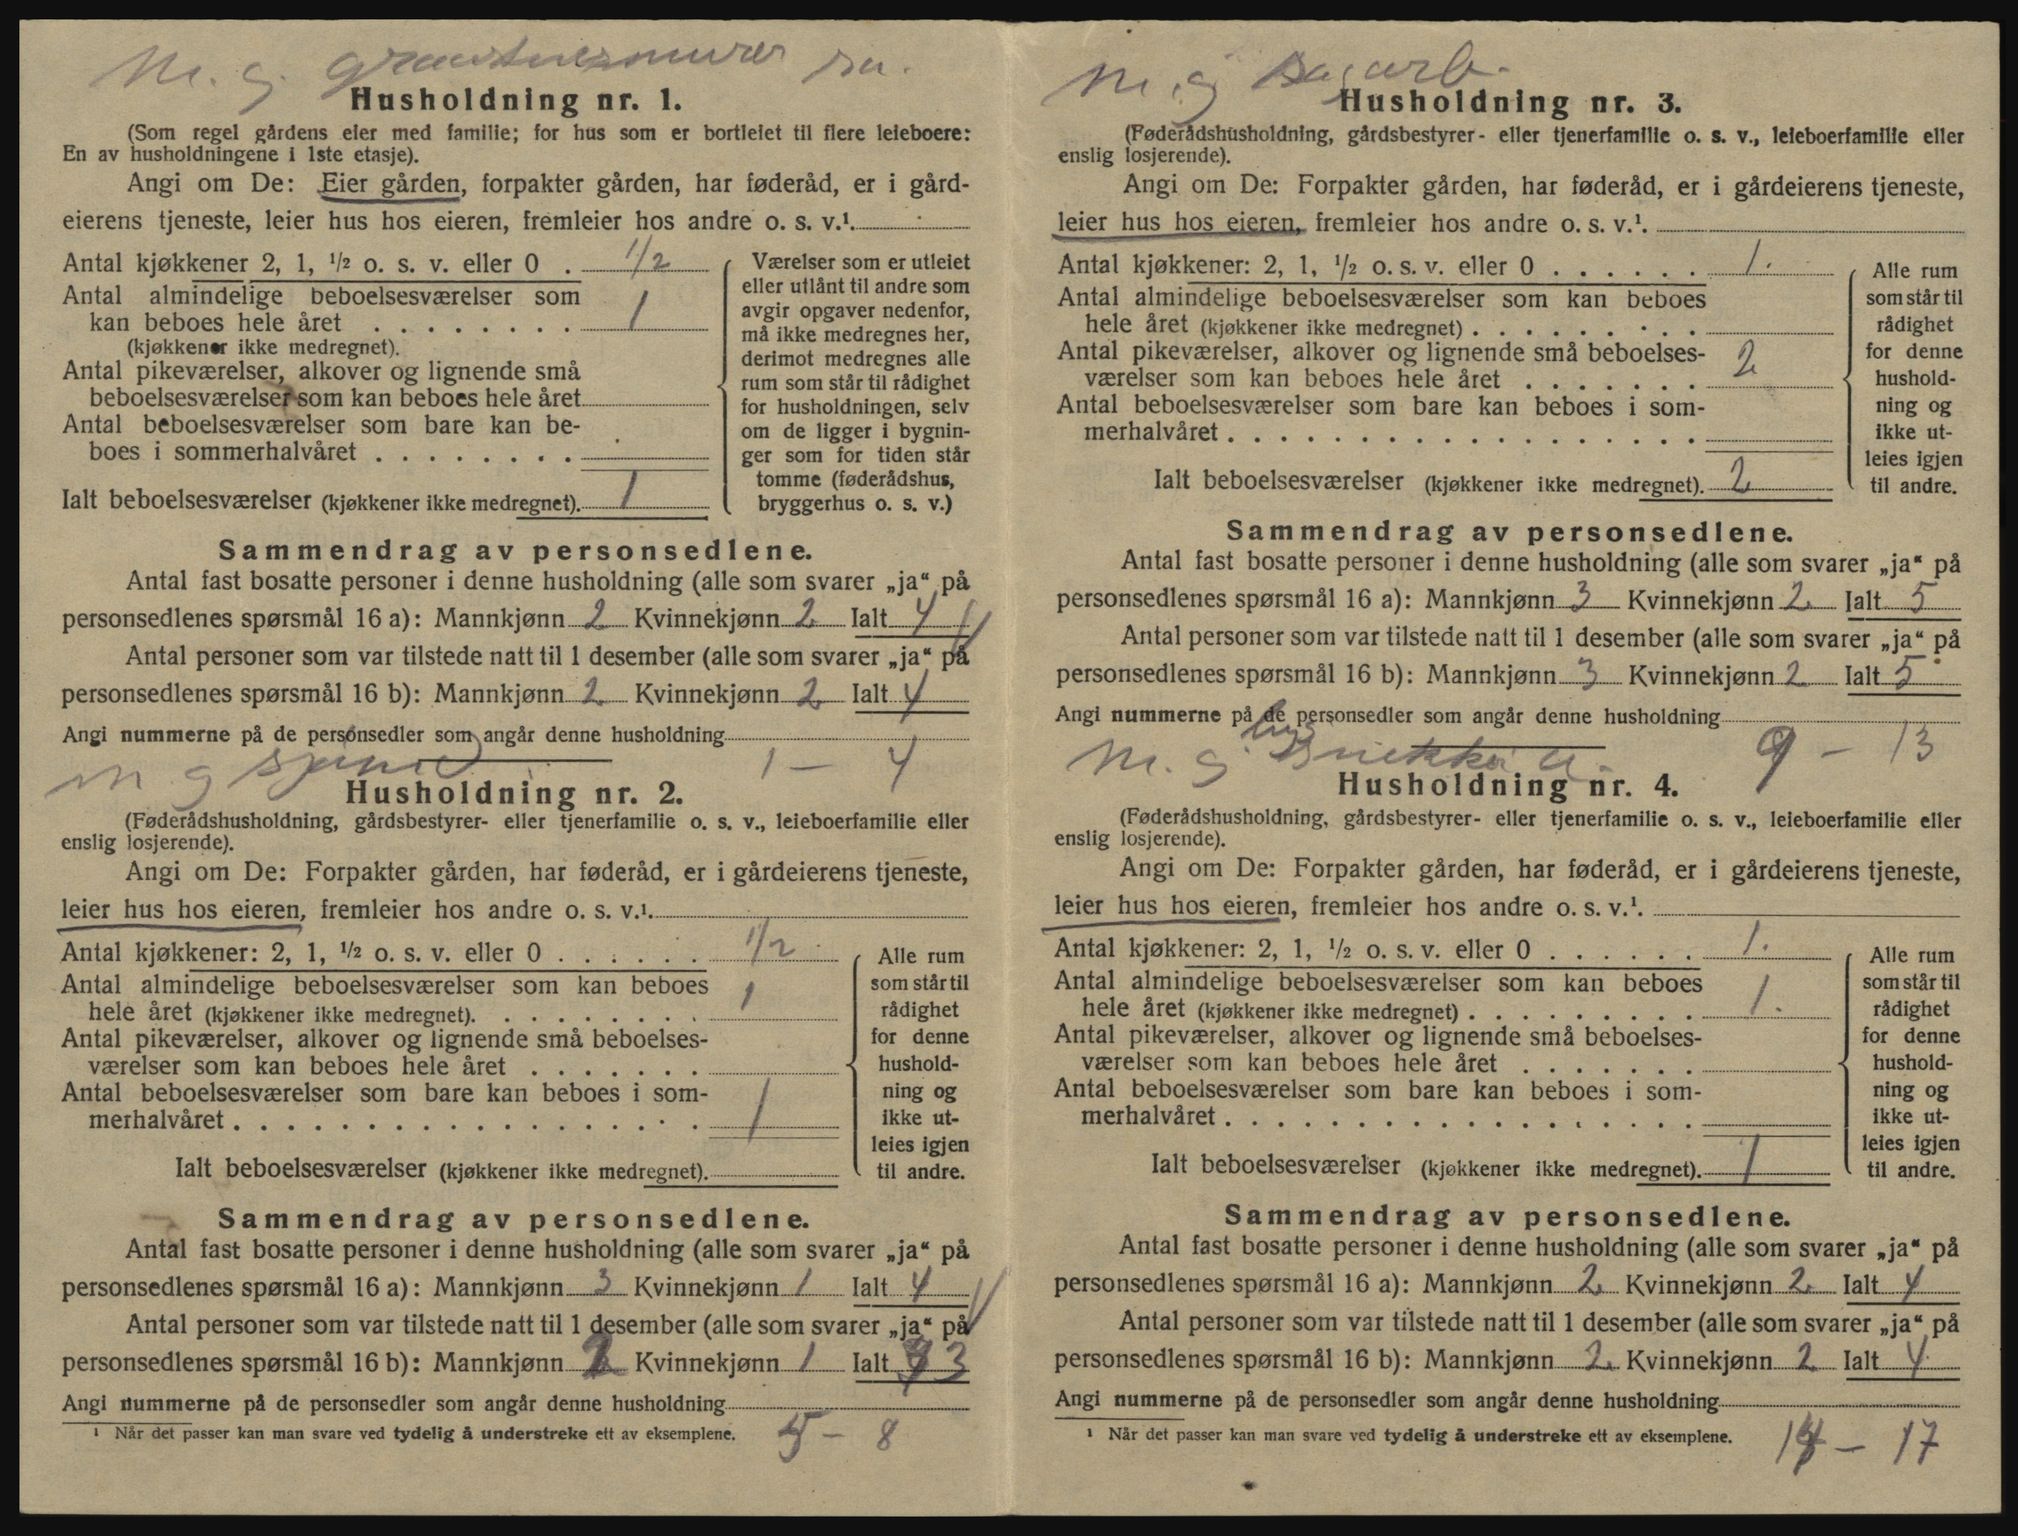 M. g.
Husholdning nr. 1.
(Som regel gårdens eier med familie; for hus som er bortleiet til flere leieboere:
En av husholdningene i 1ste etasje).
Angi om De: Eier gården, forpakter gården, har føderåd, er i gård-
eierens tjeneste, leier hus hos eieren, fremleier hos andre o. s. v.¹.
Antal kjøkkener 2, 1, ½ o. s. v. eller 0 . 1/2
Antal almindelige beboelsesværelser som
kan beboes hele året . . . . . . . . 1
(kjøkkener ikke medregnet).
Antal pikeværelser, alkover og lignende små
beboelsesværelser som kan beboes hele året
Antal beboelsesværelser som bare kan be-
boes i sommerhalvåret . . . . . . . .
Ialt beboelsesværelser (kjøkkener ikke medregnet). 1
Værelser som er utleiet
eller utlånt til andre som
avgir opgaver nedenfor,
må ikke medregnes her,
derimot medregnes alle
rum som står til rådighet
for husholdningen, selv
om de ligger i bygnin-
ger som for tiden står
tomme (føderådshus,
bryggerhus o. s. v.)
Sammendrag av personsedlene.
Antal fast bosatte personer i denne husholdning (alle som svarer „ja“ på
personsedlenes spørsmål 16 a): Mannkjønn 2 Kvinnekjønn 2 Ialt 4
Antal personer som var tilstede natt til 1 desember (alle som svarer „ja“ på
personsedlenes spørsmål 16 b): Mannkjønn 2 Kvinnekjønn 2 Ialt 4
Angi nummerne på de personsedler som angår denne husholdning
1 – 4
m g
Husholdning nr. 2.
(Føderådshusholdning, gårdsbestyrer- eller tjenerfamilie o. s. v., leieboerfamilie eller
enslig losjerende).
Angi om De: Forpakter gården, har føderåd, er i gårdeierens tjeneste,
leier hus hos eieren, fremleier hos andre o. s. v.¹.
Antal kjøkkener: 2, 1, ½ o. s. v. eller 0 . . . . . . 1/2
Antal almindelige beboelsesværelser som kan beboes
hele året (kjøkkener ikke medregnet). . . . . . . . . 1
Antal pikeværelser, alkover og lignende små beboelses-
værelser som kan beboes hele året . . . . . . .
Antal beboelsesværelser som bare kan beboes i som-
merhalvåret . . . . . . . . . . . . . . . . . . 1
Ialt beboelsesværelser (kjøkkener ikke medregnet).
Alle rum
som står til
rådighet
for denne
hushold-
ning og
ikke ut-
leies igjen
til andre.
Sammendrag av personsedlene.
Antal fast bosatte personer i denne husholdning (alle som svarer „ja“ på
personsedlenes spørsmål 16 a): Mannkjønn 3 Kvinnekjønn 1 Ialt 4
Antal personer som var tilstede natt til 1 desember (alle som svarer „ja“ på
personsedlenes spørsmål 16 b): Mannkjønn 2 Kvinnekjønn 1 Ialt 3
Angi nummerne på de personsedler som angår denne husholdning
¹ Når det passer kan man svare ved tydelig å understreke ett av eksemplene.
5 – 8
M. g
Husholdning nr. 3.
(Føderådshusholdning, gårdsbestyrer- eller tjenerfamilie o. s. v., leieboerfamilie eller
enslig losjerende).
Angi om De: Forpakter gården, har føderåd, er i gårdeierens tjeneste,
leier hus hos eieren, fremleier hos andre o. s. v.¹.
Antal kjøkkener: 2, 1, ½ o. s. v. eller 0 . . . . . . 1.
Antal almindelige beboelsesværelser som kan beboes
hele året (kjøkkener ikke medregnet) . . . . . . . . .
Antal pikeværelser, alkover og lignende små beboelses-
værelser som kan beboes hele året . . . . . . . 2
Antal beboelsesværelser som bare kan beboes i som-
merhalvåret . . . . . . . . . . . . . . . . . .
Ialt beboelsesværelser (kjøkkener ikke medregnet). 2
Alle rum
som står til
rådighet
for denne
hushold-
ning og
ikke ut-
leies igjen
til andre.
Sammendrag av personsedlene.
Antal fast bosatte personer i denne husholdning (alle som svarer „ja“ på
personsedlenes spørsmål 16 a): Mannkjønn 3 Kvinnekjønn 2 Ialt 5
Antal personer som var tilstede natt til 1 desember (alle som svarer „ja“ på
personsedlenes spørsmål 16 b): Mannkjønn 3 Kvinnekjønn 2 Ialt 5
Angi nummerne på de personsedler som angår denne husholdning
9 – 13
M. g
Husholdning nr. 4.
(Føderådshusholdning, gårdsbestyrer- eller tjenerfamilie o. s. v., leieboerfamilie eller
enslig losjerende).
Angi om De: Forpakter gården, har føderåd, er i gårdeierens tjeneste,
leier hus hos eieren, fremleier hos andre o. s. v.¹.
Antal kjøkkener: 2, 1, ½ o. s. v. eller 0 . . . . . . 1.
Antal almindelige beboelsesværelser som kan beboes
hele året (kjøkkener ikke medregnet) . . . . . . . . . 1.
Antal pikeværelser, alkover og lignende små beboelses-
værelser som kan beboes hele året . . . . . . .
Antal beboelsesværelser som bare kan beboes i som-
merhalvåret . . . . . . . . . . . . . . . . . .
Ialt beboelsesværelser (kjøkkener ikke medregnet). 1
Alle rum
som står til
rådighet
for denne
hushold-
ning og
ikke ut-
leies igjen
til andre.
Sammendrag av personsedlene.
Antal fast bosatte personer i denne husholdning (alle som svarer „ja“ på
personsedlenes spørsmål 16 a): Mannkjønn 2 Kvinnekjønn 2 Ialt 4
Antal personer som var tilstede natt til 1 desember (alle som svarer „ja“ på
personsedlenes spørsmål 16 b): Mannkjønn 2 Kvinnekjønn 2 Ialt 4
Angi nummerne på de personsedler som angår denne husholdning
¹ Når det passer kan man svare ved tydelig å understreke ett av eksemplene.
14 – 17